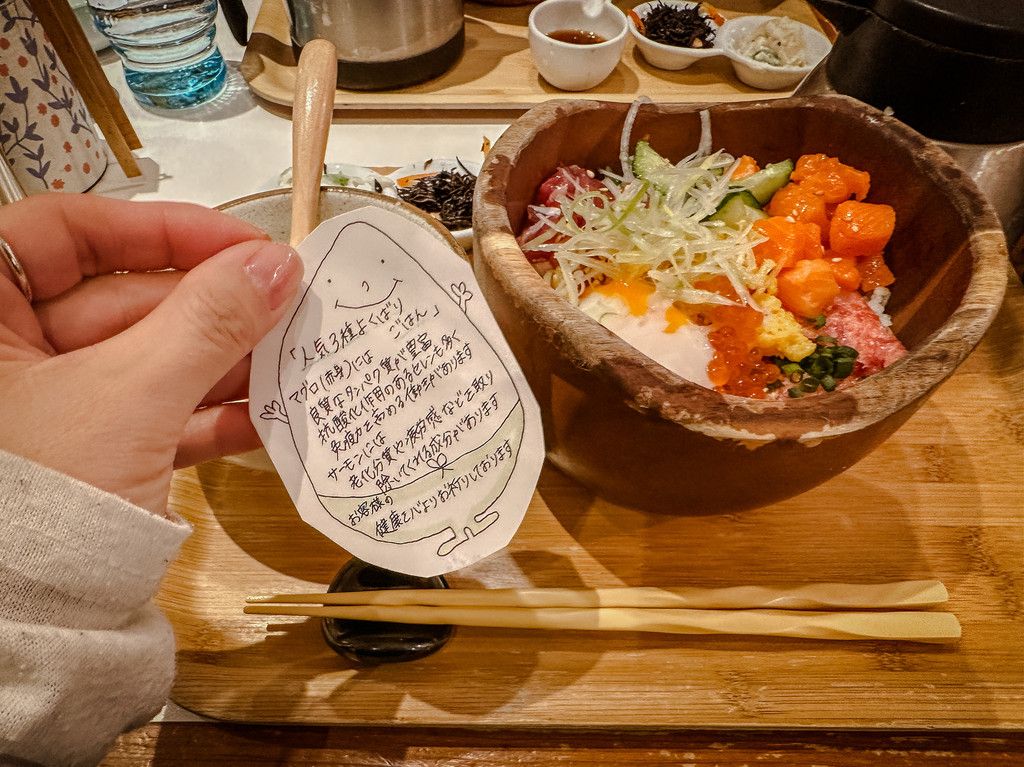 「人気3種よくばり
ごはん」
マグロ(赤身)には
良質なタンパク質が豊富
抗酸化作用のあるセレンも多く
免疫力を高める働きがあります
サーモンには
老化物質や疲労感などを取り
除いてくれる成分があります
お客様の
健康を心よりお祈りしております